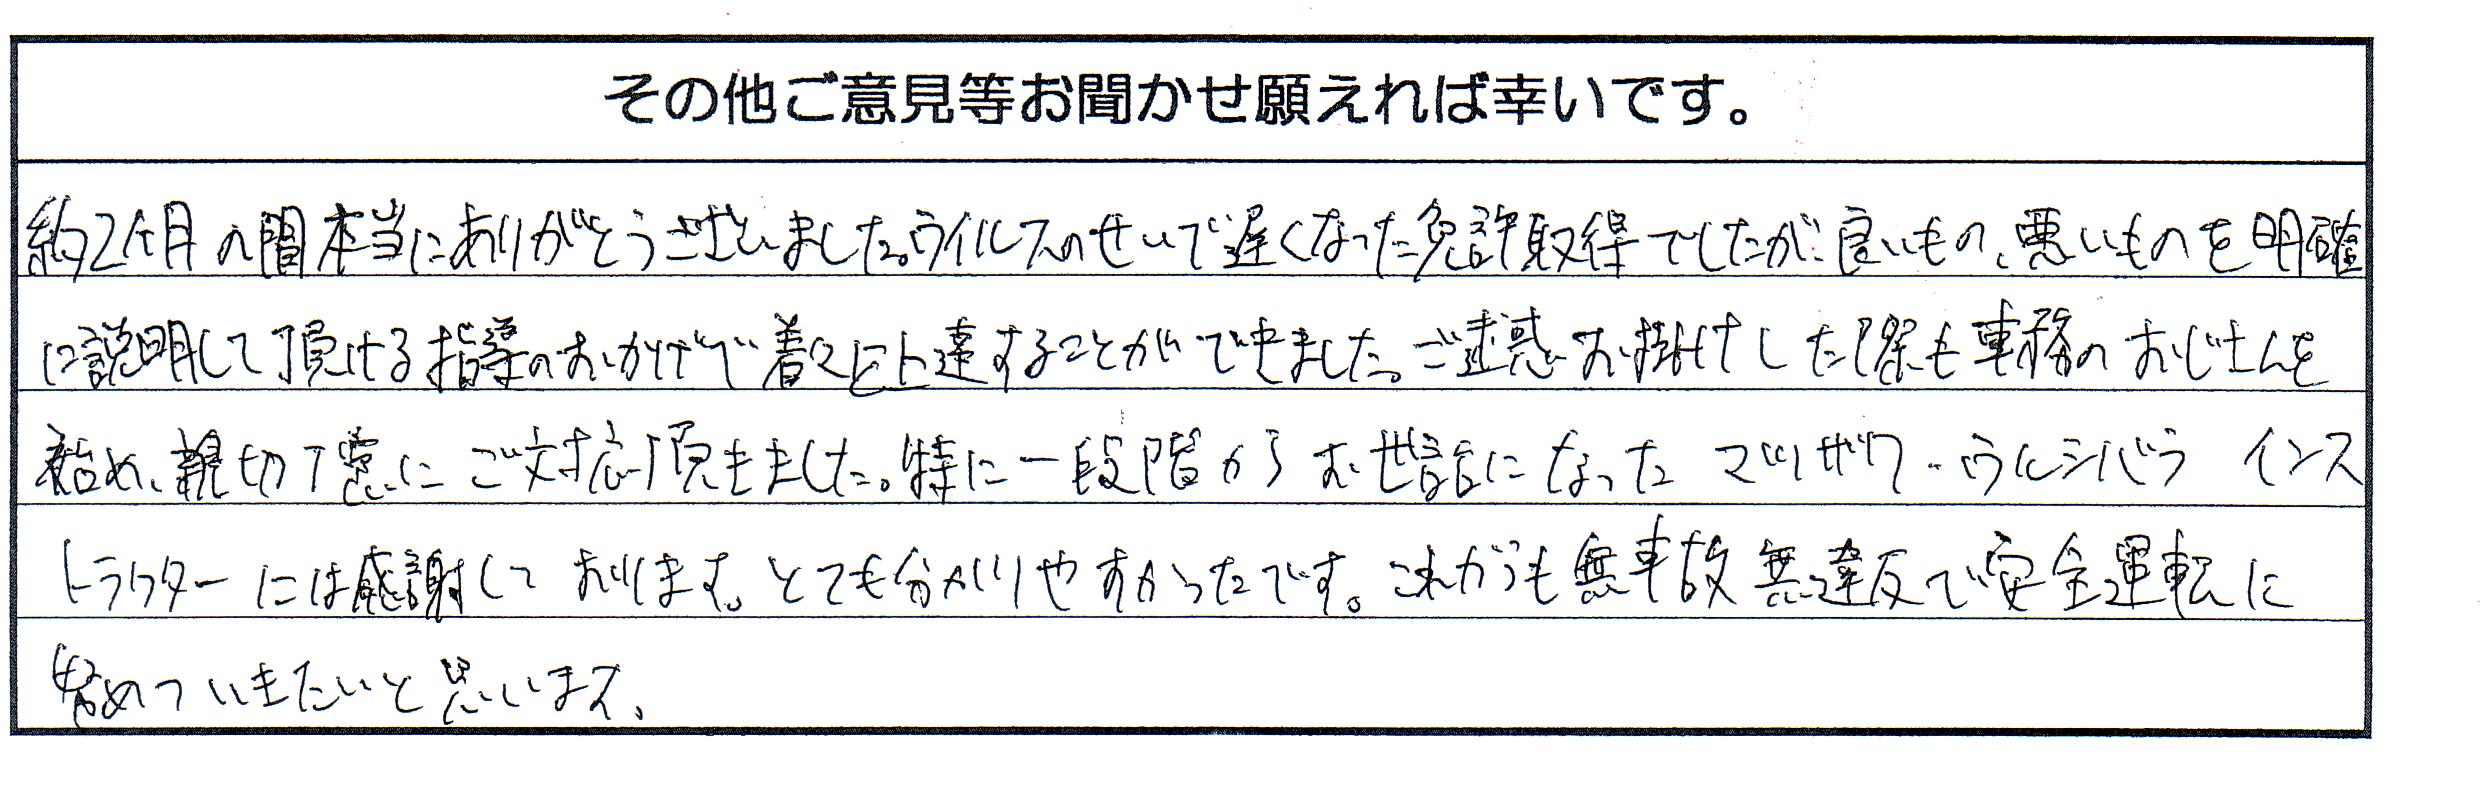 その他ご意見等お聞かせ願えれば幸いです。
約2ヶ月の間本当にありがとうございました。ウイルスのせいで遅くなった免許取得でしたが、良いもの、悪いものを明確
に説明して頂ける指導のおかげで着々と上達することができました。ご迷惑お掛けした際も事務のおじさんを
始め、親切丁寧にご対応頂きました。特に一段階からお世話になったマツザワ・ウルシバラ インス
トラクターには感謝しております。とても分かりやすかったです。これからも無事故無違反で安全運転に
努めていきたいと思います。